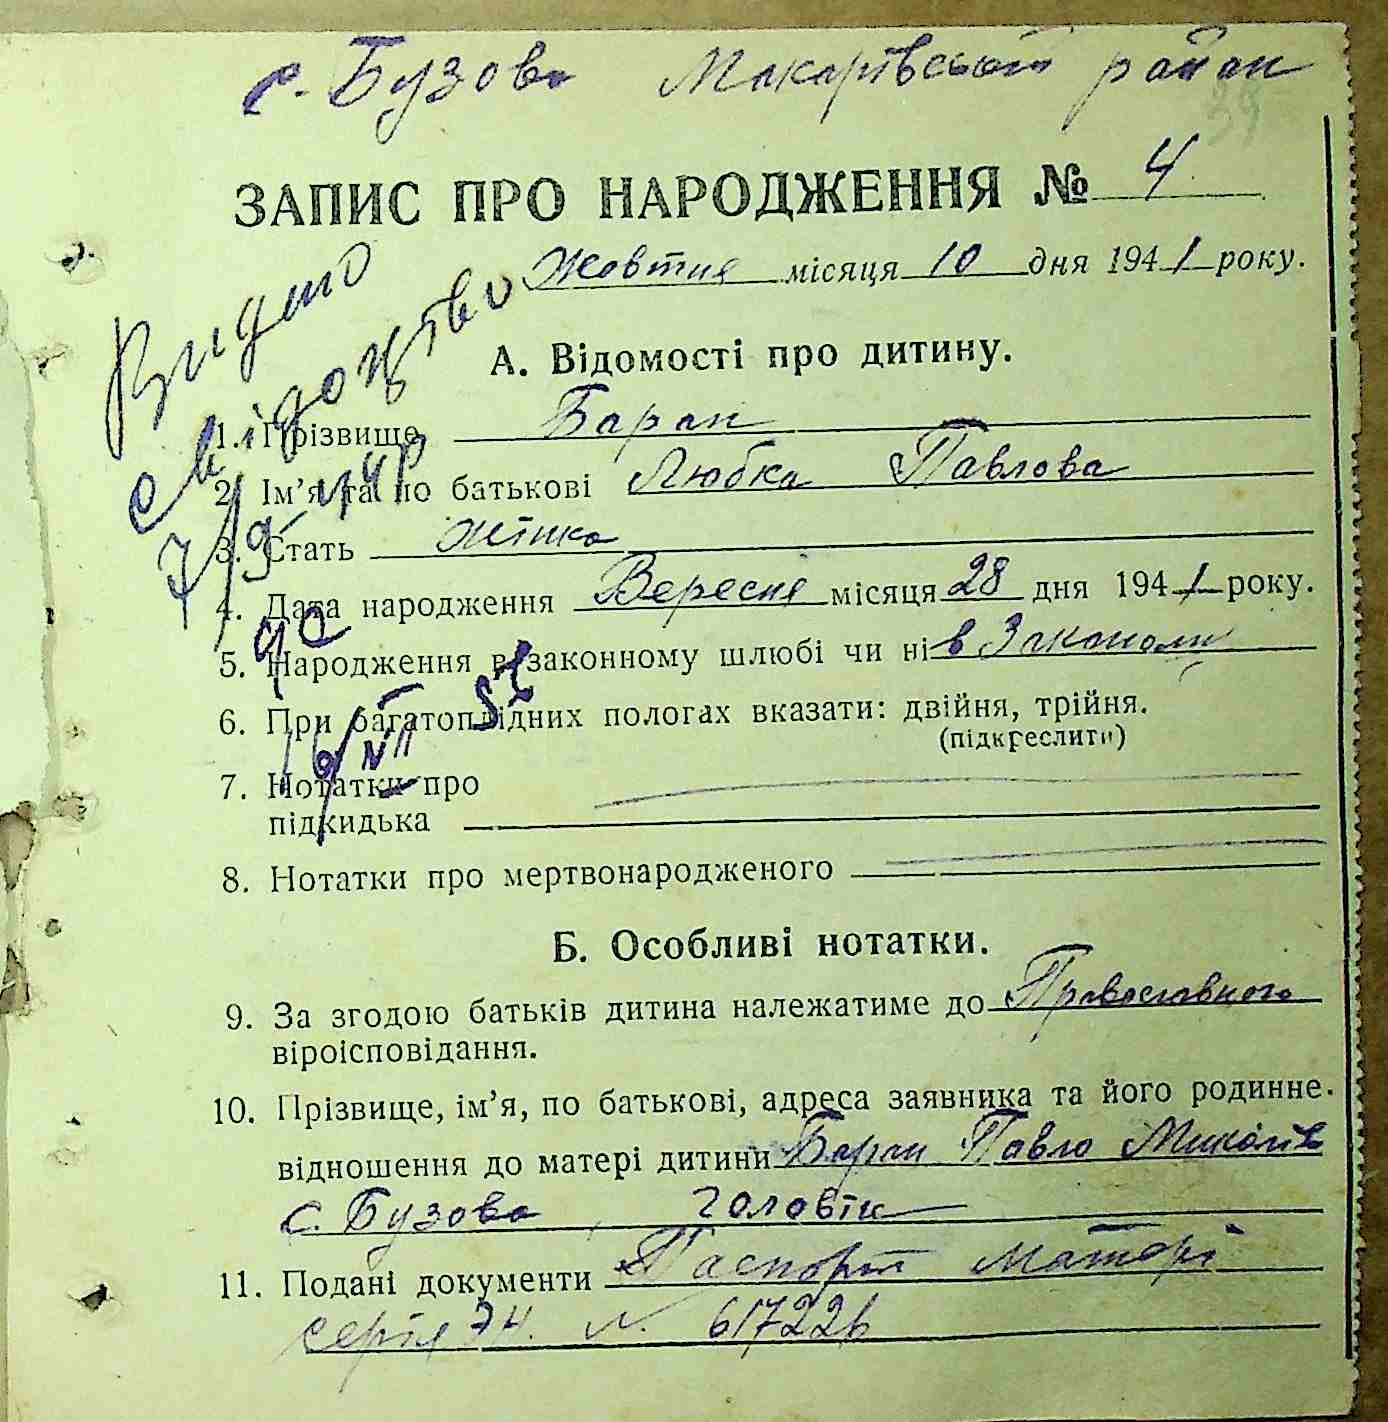 с. Бузова Макарівський район
ЗАПИС ПРО НАРОДЖЕННЯ № 4
Жовтня місяця 10 дня 1941 року.
Видано
свідоцтво
А. Відомості про дитину.
1. Прізвище Баран
2. Ім'я та по батькові Любка Павлова
3. Стать Жінка
4. Дата народження Вересня місяця 28 дня 1941 року.
5. Народження в законному шлюбі чи ні в Законому
6. При багатоплідних пологах вказати: двійня, трійня.
(підкреслити)
7. Нотатки про
підкидька
8. Нотатки про мертвонародженого
Б. Особливі нотатки.
9. За згодою батьків дитина належатиме до Православного
віроісповідання.
10. Прізвище, ім'я, по батькові, адреса заявника та його родинне.
відношення до матері дитини Баран Павло
с. Бузова чоловік
11. Подані документи Паспорт матері
серія №. 617226